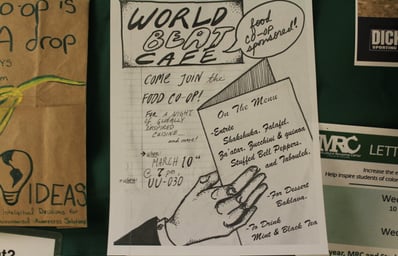 o-op is
A drop
IDEAS
WORLD
BEAT
CAFÉ
food
co-op
sponsored!
COME JOIN the
FOOD CO-OP!
FOR A NIGHT
OF GLOBALLY
INSPIRED
CUISINE
and more!
WHEN:
MARCH 10th
@ 7 pm
WHERE:
UU-030
On The Menu
-Entrée
Shakshuka, Falafel,
Za'atar, Zucchini & quinoa
Stuffed Bell Peppers,
and Tabouleh.
-For Dessert
Baklava.
-To Drink
Mint & Black Tea
DICK
SPORTING
MRC
LETT
Increase the
Help inspire students of color
Wed
10
We
year, MRC and Stud